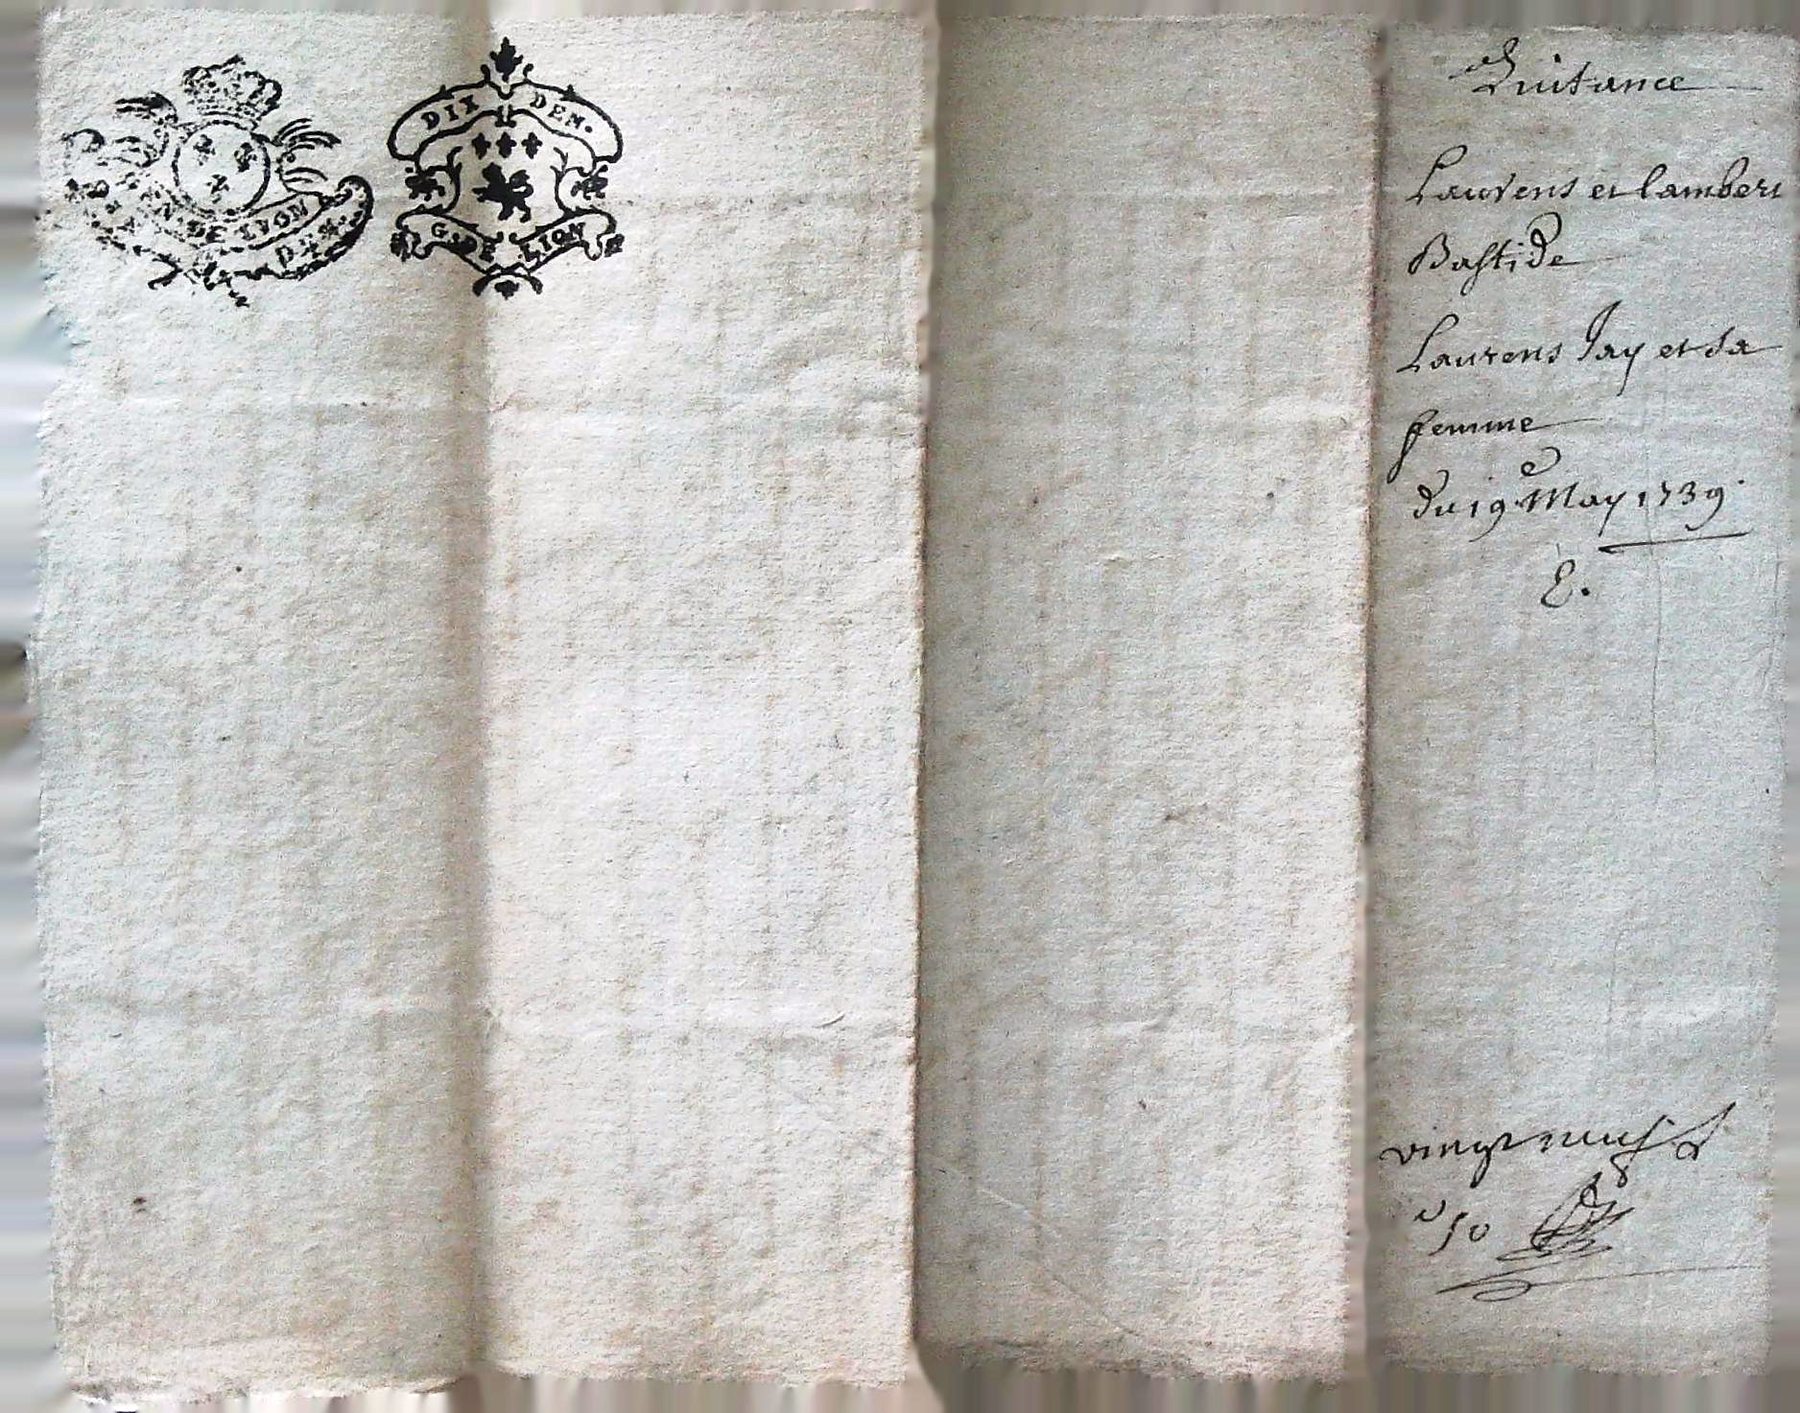 GEN. DE LYON
DIX DEN.
G. DE LION
Quitance
Laurens et lambert
Bastide
Laurens Jay et sa
femme
du 19e May 1739.
E.
vingt neuf